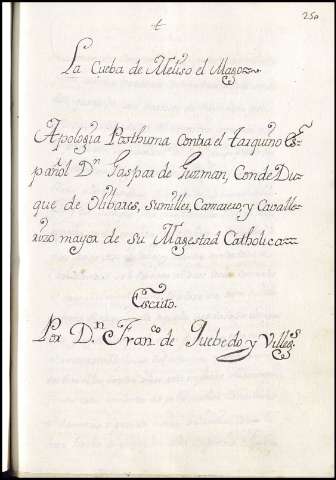 250
La Cueba de Meliso el Mago
Apologia Posthuma contra el tarquino Es-
pañol Dn Gaspar de Guzman, Conde Du-
que de Olibares, sumiller, Camarero, y Cavalle-
rizo mayor de su Magestad Catholica
Escrito.
Por D.n Fran.co de Quebedo y Villeg.s